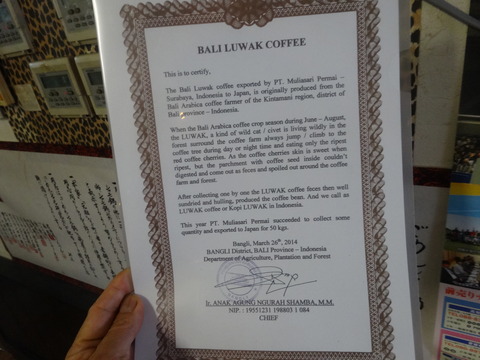 BALI LUWAK COFFEE
This is to certify,
The Bali Luwak coffee exported by PT. Muliasari Permai –
Surabaya, Indonesia to Japan, is originally produced from the
Bali Arabica coffee farmer of the Kintamani region, district of
Bali Province – Indonesia.
When the Bali Arabica coffee crop season during June – August,
the LUWAK, a kind of wild cat / civet is living wildly in the
forest surround the coffee farm always jump / climb to the
coffee tree during day or night time and eating only the ripest
red coffee cherries. As the coffee cherries skin is sweet when
ripest, but the parchment with coffee seed inside couldn't
digested and come out as feces and spoiled out around the coffee
farm and forest.
After collecting one by one the LUWAK coffee feces then well
sundried and hulling, produced the coffee bean. And we call as
LUWAK coffee or Kopi LUWAK in Indonesia.
This year PT. Muliasari Permai succeeded to collect some
quantity and exported to Japan for 50 kgs.
Bangli, March 26th, 2014
BANGLI District, BALI Province – Indonesia
Department of Agriculture, Plantation and Forest
Ir. ANAK AGUNG NGURAH SHAMBA, M.M.
NIP. : 19551231 198803 1 084
CHIEF